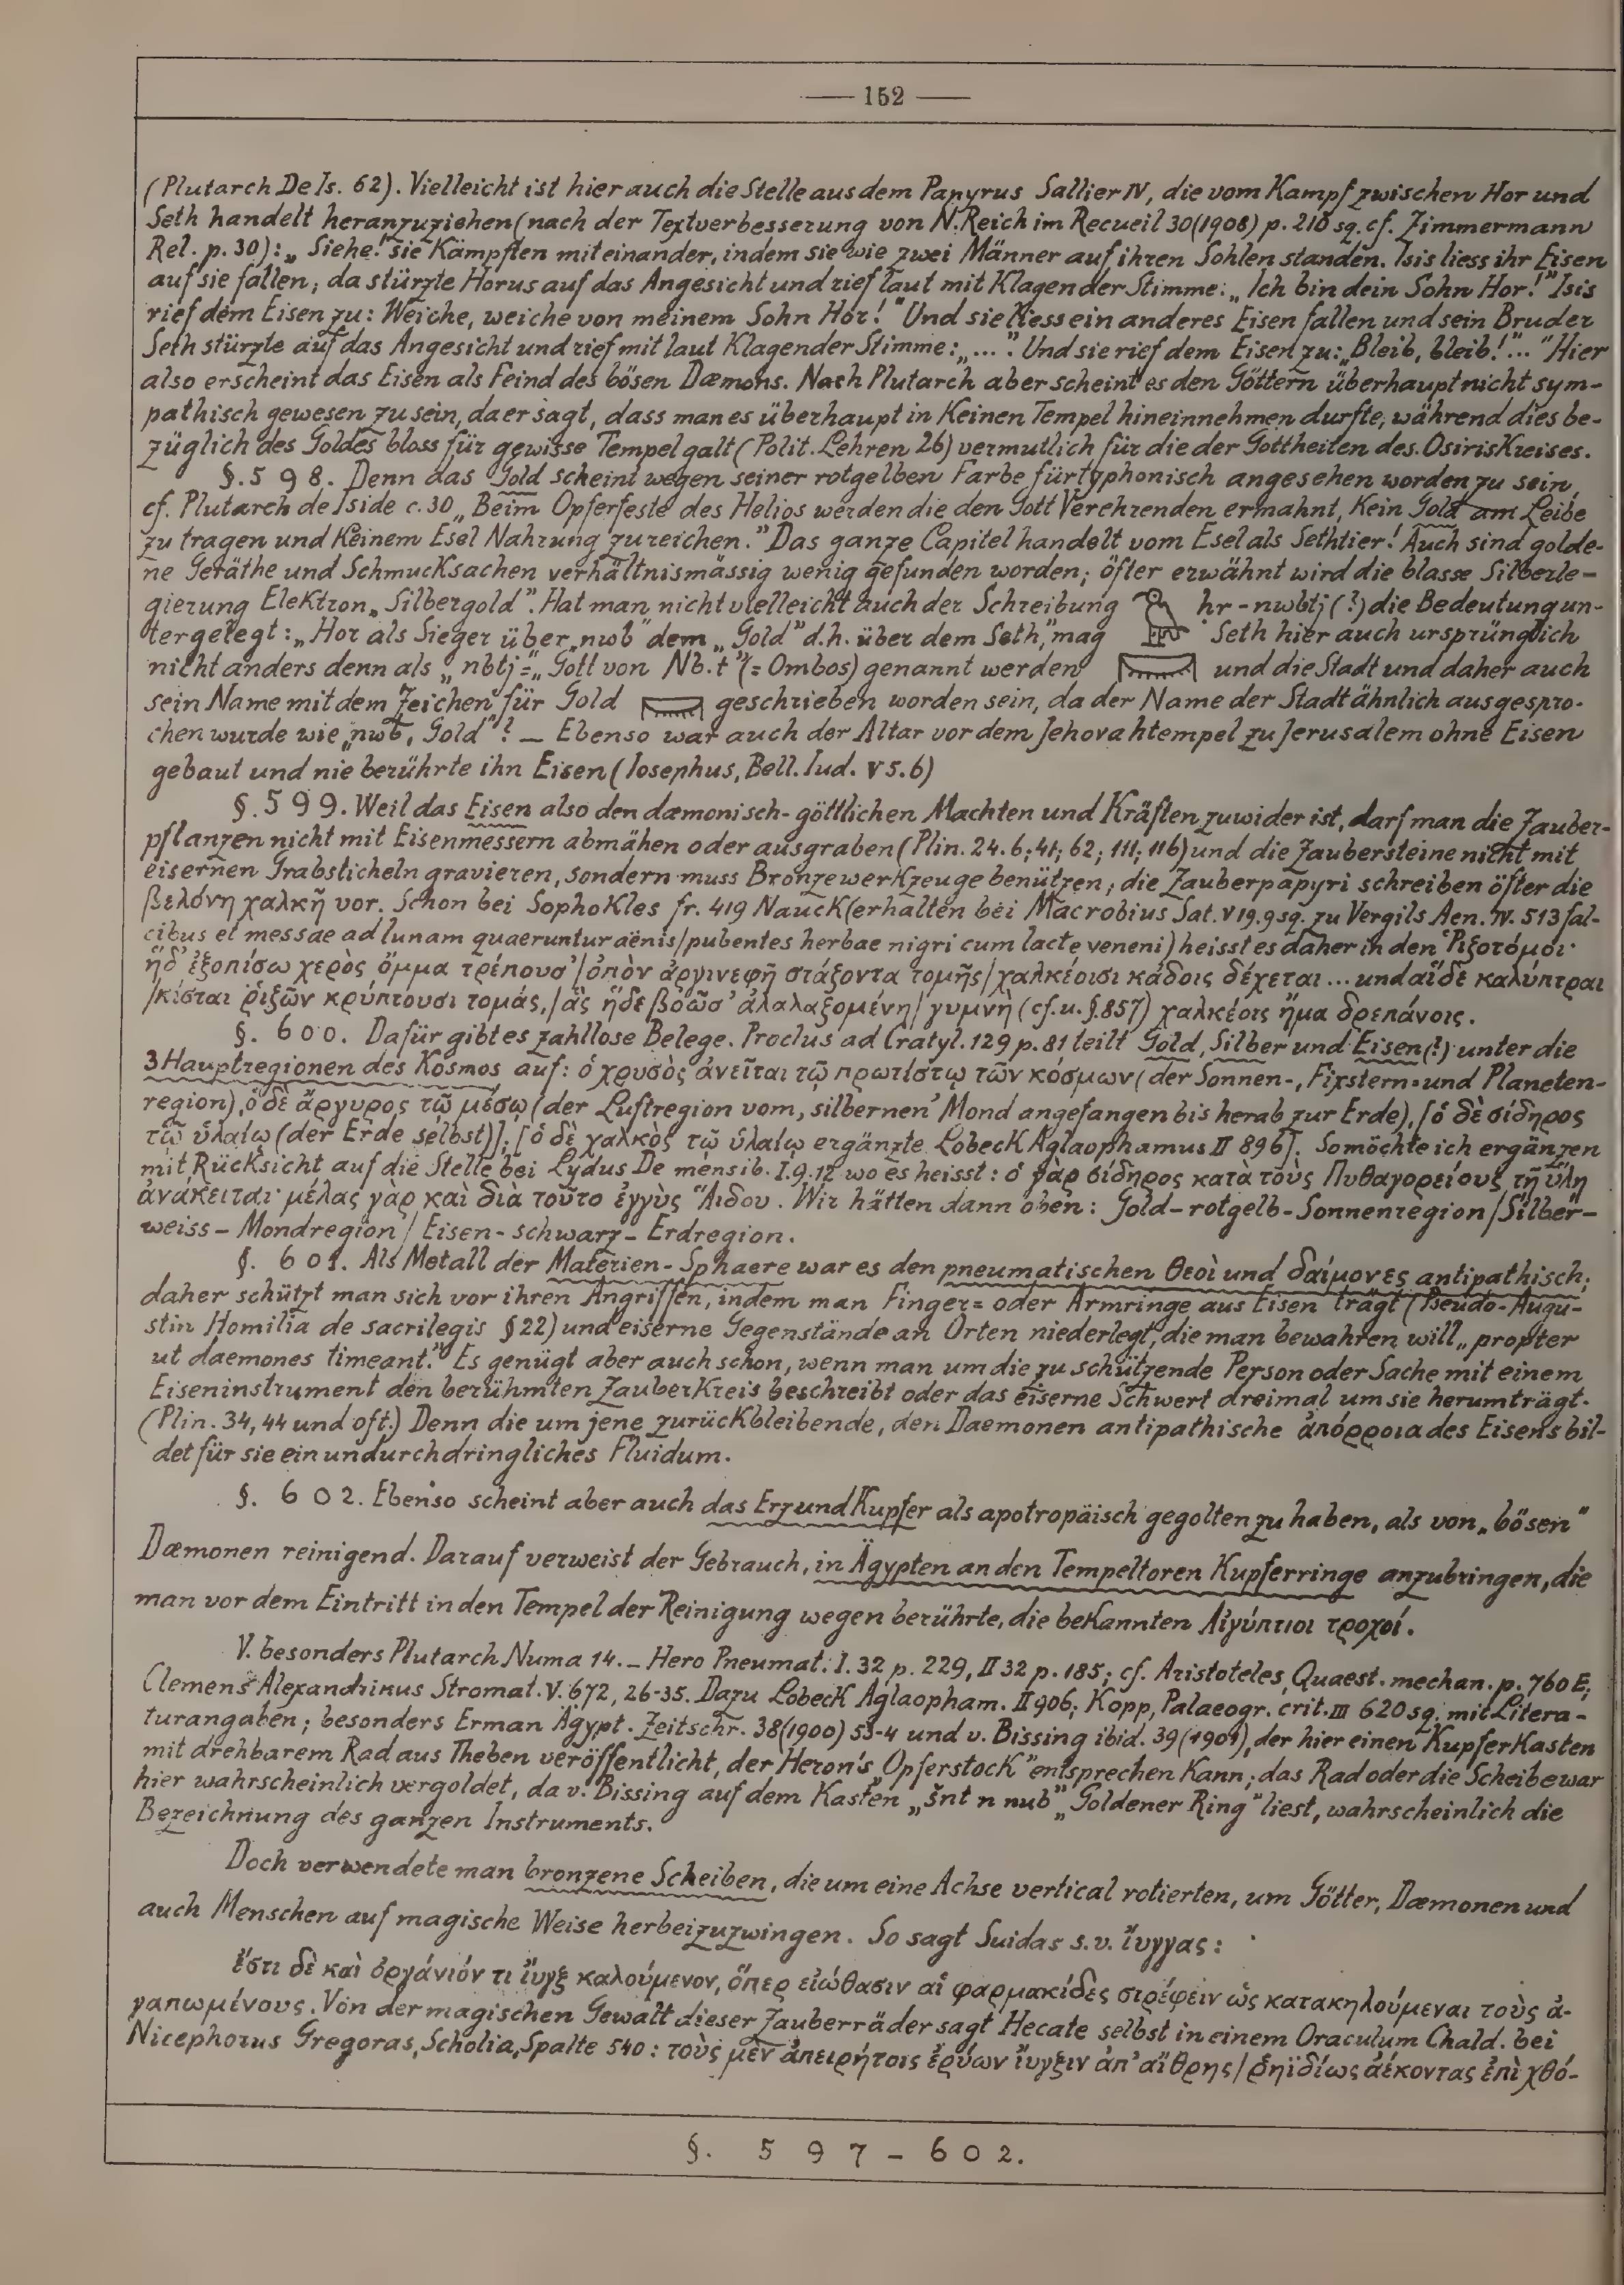 — 152 —
(Plutarch De Is. 62). Vielleicht ist hier auch die Stelle aus dem Papyrus Sallier IV, die vom Kampf zwischen Hor und
Seth handelt heranzuziehen (nach der Textverbesserung von N. Reich im Recueil 30(1908) p. 210 sq. cf. Zimmermann
Rel. p. 30): „Siehe! sie Kämpften miteinander, indem sie wie zwei Männer auf ihren Sohlen standen. Isis liess ihr Eisen
auf sie fallen; da stürzte Horus auf das Angesicht und rief laut mit Klagender Stimme: „Ich bin dein Sohn Hor!" Isis
rief dem Eisen zu: Weiche, weiche von meinem Sohn Hor!" Und sie liess ein anderes Eisen fallen und sein Bruder
Seth stürzte auf das Angesicht und rief mit laut Klagender Stimme: „...". Und sie rief dem Eisen zu: „Bleib, bleib!"..." Hier
also erscheint das Eisen als Feind des bösen Dæmons. Nach Plutarch aber scheint es den Göttern überhaupt nicht sym-
pathisch gewesen zu sein, da er sagt, dass man es überhaupt in Keinen Tempel hineinnehmen durfte, während dies be-
züglich des Goldes bloss für gewisse Tempel galt (Polit. Lehren 26) vermutlich für die der Gottheiten des OsirisKreises.
§. 598. Denn das Gold scheint wegen seiner rotgelben Farbe für typhonisch angesehen worden zu sein,
cf. Plutarch de Iside c. 30 „Beim Opferfeste des Helios werden die den Gott Verehrenden ermahnt, Kein Gold am Leibe
zu tragen und Keinem Esel Nahrung zu reichen." Das ganze Capitel handelt vom Esel als Sethtier! Auch sind golde-
ne Geräthe und Schmucksachen verhältnismässig wenig gefunden worden; öfter erwähnt wird die blasse Silberle-
gierung Elektron „Silbergold". Hat man nicht vielleicht auch der Schreibung hr-nwbtj (?) die Bedeutung un-
tergelegt: „Hor als Sieger über „nwb" dem „Gold" d.h. über dem Seth," mag Seth hier auch ursprünglich
nicht anders denn als „nbtj" = „Gott von Nb.t" (= Ombos) genannt werden und die Stadt und daher auch
sein Name mit dem Zeichen für Gold geschrieben worden sein, da der Name der Stadt ähnlich ausgespro-
chen wurde wie „nwb, Gold"? — Ebenso war auch der Altar vor dem Jehovahtempel zu Jerusalem ohne Eisen
gebaut und nie berührte ihn Eisen (Iosephus, Bell. Iud. V 5. 6)
§. 599. Weil das Eisen also den dæmonisch-göttlichen Machten und Kräften zuwider ist, darf man die Zauber-
pflanzen nicht mit Eisenmessern abmähen oder ausgraben (Plin. 24. 6; 41; 62; 111; 116) und die Zaubersteine nicht mit
eisernen Grabsticheln gravieren, sondern muss Bronzewerkzeuge benützen; die Zauberpapyri schreiben öfter die
βελόνη χαλκῆ vor. Schon bei Sophokles fr. 419 Nauck (erhalten bei Macrobius Sat. V 19. 9 sq. zu Vergils Aen. IV. 513 fal-
cibus et messae ad lunam quaeruntur aënis / pubentes herbae nigri cum lacte veneni) heisst es daher in den Ῥιζοτόμοι·
ἡδ' ἐξοπίσω χερὸς ὄμμα τρέπουσ' / ὀπὸν ἀργινεφῆ στάζοντα τομῆς / χαλκέοισι κάδοις δέχεται ... und αἵδε καλύπτραι
/ κίσται ῥιζῶν κρύπτουσι τομάς, / ἃς ἥδε βοῶσ' ἀλαλαζομένη / γυμνὴ (cf. u. §. 857) χαλκέοις ἤμα δρεπάνοις.
§. 600. Dafür gibt es zahllose Belege. Proclus ad Cratyl. 129 p. 81 teilt Gold, Silber und Eisen (?) unter die
3 Hauptregionen des Kosmos auf: ὁ χρυσὸς ἀνεῖται τῷ πρωτίστῳ τῶν κόσμων (der Sonnen-, Fixstern- und Planeten-
region), ὁ δὲ ἄργυρος τῷ μέσῳ (der Luftregion vom „silbernen" Mond angefangen bis herab zur Erde), [ὁ δὲ σίδηρος
τῷ ὑλαίῳ (der Erde selbst)]; [ὁ δὲ χαλκὸς τῷ ὑλαίῳ ergänzte Lobeck Aglaophamus II 896]. So möchte ich ergänzen
mit Rücksicht auf die Stelle bei Lydus De mensib. I. 9. 12 wo es heisst: ὁ γὰρ σίδηρος κατὰ τοὺς Πυθαγορείους τῇ ὕλῃ
ἀνάκειται· μέλας γὰρ καὶ διὰ τοῦτο ἐγγὺς Ἄιδου. Wir hätten dann oben: Gold-rotgelb-Sonnenregion / Silber-
weiss-Mondregion / Eisen-schwarz-Erdregion.
§. 601. Als Metall der Materien-Sphaere war es den pneumatischen Θεοὶ und δαίμονες antipathisch;
daher schützt man sich vor ihren Angriffen, indem man Finger= oder Armringe aus Eisen trägt (Pseudo-Augu-
stin Homilia de sacrilegis § 22) und eiserne Gegenstände an Orten niederlegt, die man bewahren will „propter
ut daemones timeant." Es genügt aber auch schon, wenn man um die zu schützende Person oder Sache mit einem
Eiseninstrument den berühmten ZauberKreis beschreibt oder das eiserne Schwert dreimal um sie herumträgt.
(Plin. 34, 44 und oft.) Denn die um jene zurückbleibende, den Daemonen antipathische ἀπόρροια des Eisens bil-
det für sie ein undurchdringliches Fluidum.
§. 602. Ebenso scheint aber auch das Erz und Kupfer als apotropäisch gegolten zu haben, als von „bösen"
Dæmonen reinigend. Darauf verweist der Gebrauch, in Ägypten an den Tempeltoren Kupferringe anzubringen, die
man vor dem Eintritt in den Tempel der Reinigung wegen berührte, die beKannten Αἰγύπτιοι τροχοί.
V. besonders Plutarch Numa 14. — Hero Pneumat. I. 32 p. 229, II 32 p. 185; cf. Aristoteles Quaest. mechan. p. 760 E;
Clemens Alexandrinus Stromat. V. 672, 26-35. Dazu Lobeck Aglaopham. II 906; Kopp, Palaeogr. crit. III 620 sq. mit Litera-
turangaben; besonders Erman Ägypt. Zeitschr. 38 (1900) 53-4 und v. Bissing ibid. 39 (1901), der hier einen KupferKasten
mit drehbarem Rad aus Theben veröffentlicht, der Heron's „Opferstock" entsprechen Kann; das Rad oder die Scheibe war
hier wahrscheinlich vergoldet, da v. Bissing auf dem Kasten „šnt n nub" „Goldener Ring" liest, wahrscheinlich die
Bezeichnung des ganzen Instruments.
Doch verwendete man bronzene Scheiben, die um eine Achse vertical rotierten, um Götter, Dæmonen und
auch Menschen auf magische Weise herbeizuzwingen. So sagt Suidas s.v. ἴυγγας:
ἔστι δὲ καὶ ὀργάνιόν τι ἴυγξ καλούμενον, ὅπερ εἰώθασιν αἱ φαρμακίδες στρέφειν ὡς κατακηλούμεναι τοὺς ἀ-
γαπωμένους. Von der magischen Gewalt dieser Zauberräder sagt Hecate selbst in einem Oraculum Chald. bei
Nicephorus Gregoras, Scholia, Spalte 540: τοὺς μὲν ἀπειρήτοις ἐρύων ἴυγξιν ἀπ' αἴθρης / ῥηϊδίως ἀέκοντας ἐπὶ χθό-
§. 597-602.